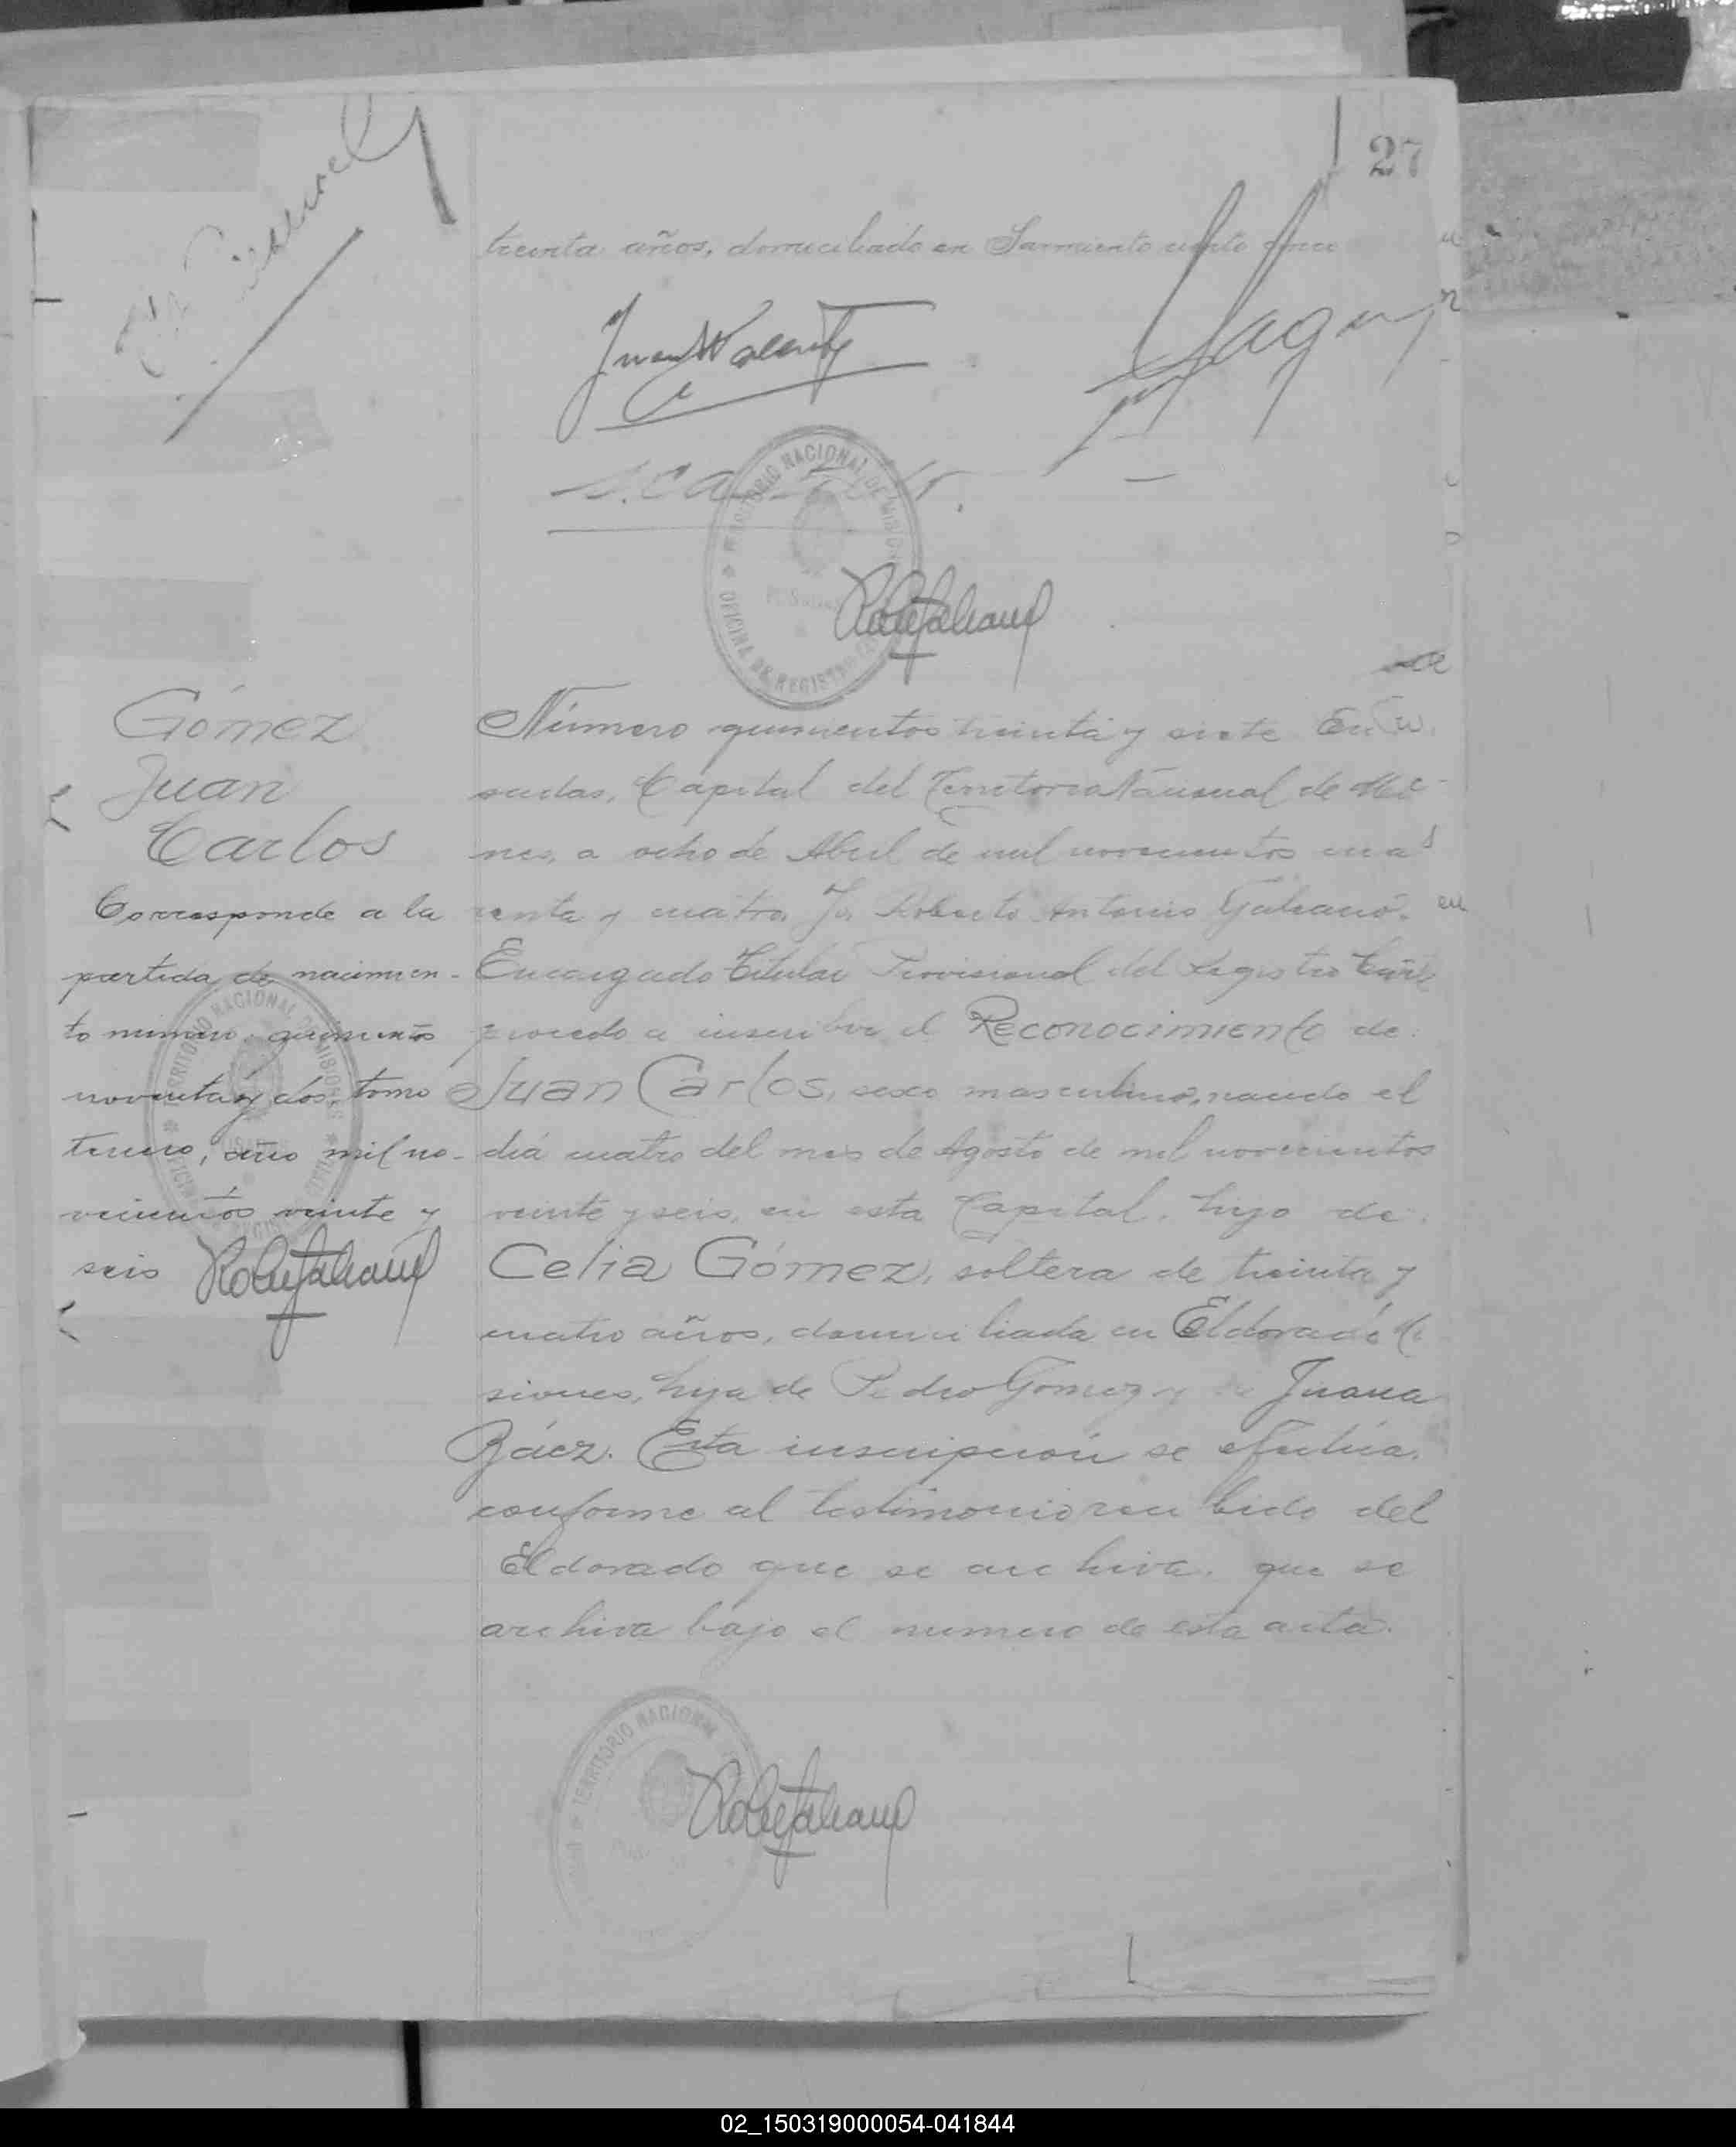 27
treinta años, domiciliado en Sarmiento ciento once
TERRITORIO NACIONAL DE MISIONES
OFICINA DE REGISTRO CIVIL
Gómez
Juan
Carlos
Corresponde a la
partida de nacimien-
to número quinientos
noventa y dos, tomo
tercero, año mil no-
vecientos veinte y
seis
TERRITORIO NACIONAL DE MISIONES
Número quinientos treinta y siete En
sadas, Capital del Territorio Nacional de Mi
nes, a ocho de Abril de mil novecientos cua
renta y cuatro. Yo Roberto Antonio Galeano,
Encargado Titular Provisional del Registro Civil
procedo a inscribir el Reconocimiento de
Juan Carlos, sexo masculino, nacido el
día cuatro del mes de Agosto de mil novecientos
veinte y seis, en esta Capital, hijo de
Celia Gómez, soltera de treinta y
cuatro años, domiciliada en Eldorado
siones, hija de Pedro Gomez y de Juana
Báez. Esta inscripción se efectúa
conforme al testimonio recibido del
Eldorado que se archiva. que se
archiva bajo el numero de esta acta.
TERRITORIO NACIONAL
02_150319000054-041844